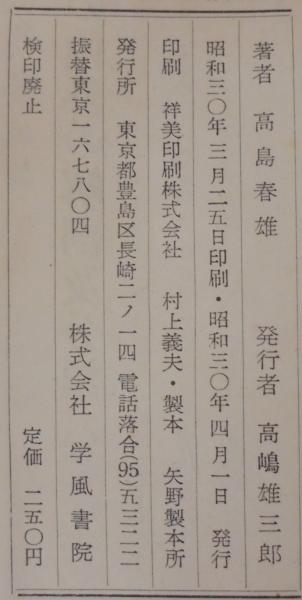 著者 高島春雄 発行者 高嶋雄三郎
昭和三〇年三月二五日印刷・昭和三〇年四月一日 発行
印刷 祥美印刷株式会社 村上義夫・製本 矢野製本所
発行所 東京都豊島区長崎二ノ一四 電話落合(95)五三二二
振替東京一六七八〇四 株式会社 学風書院
検印廃止 定価 二五〇円